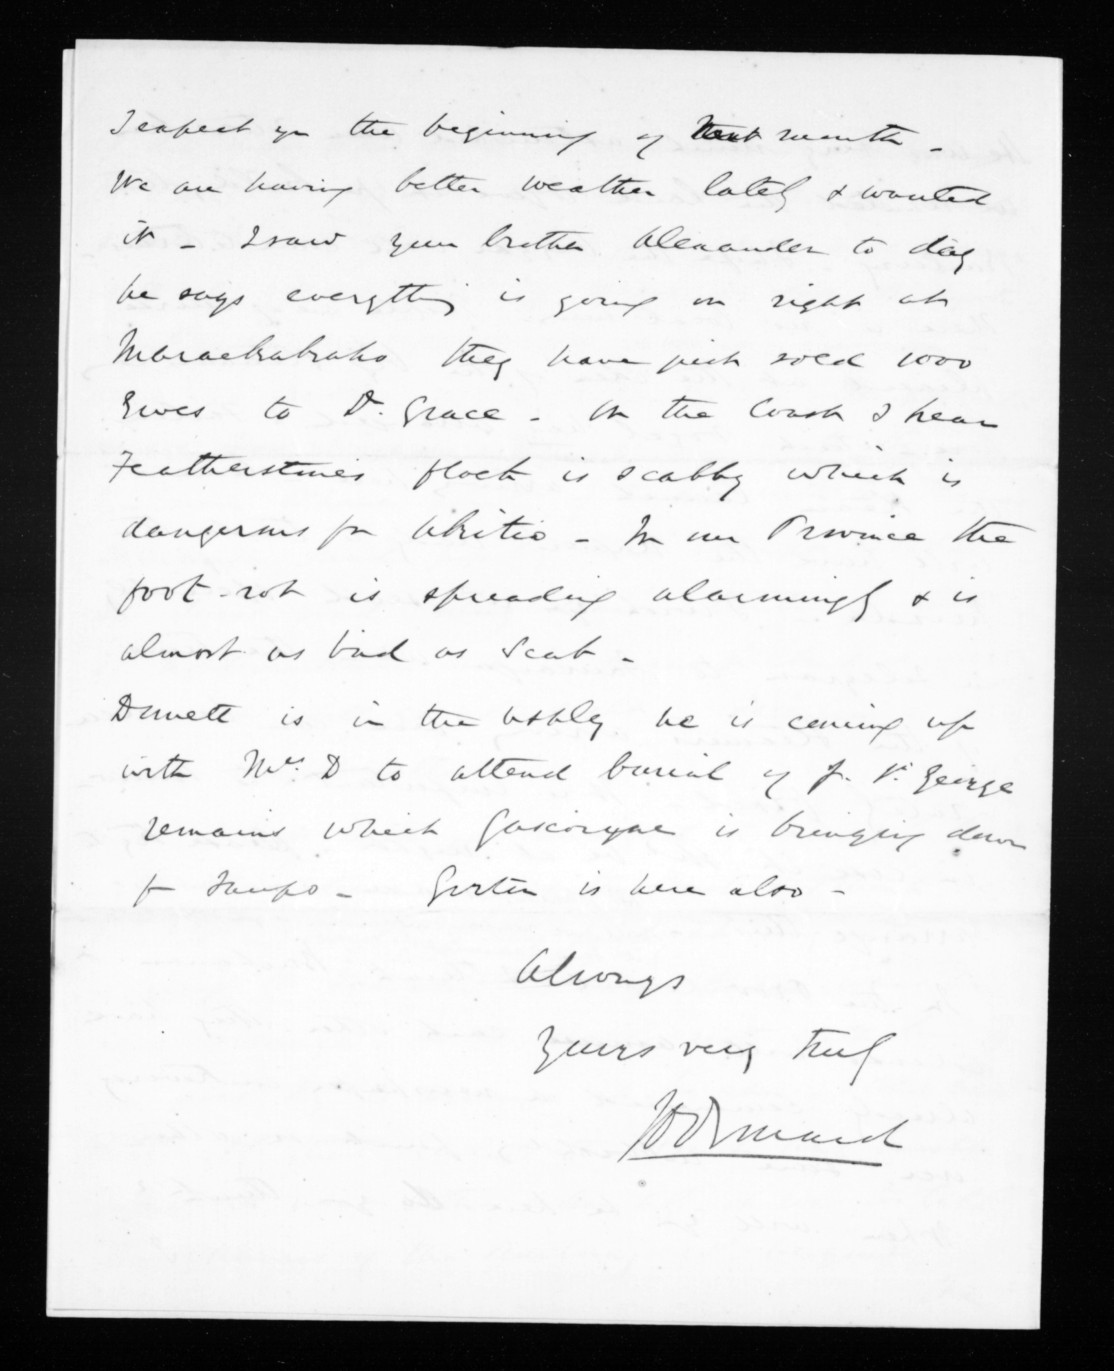 I expect you the beginning of Next month -
We are having better weather lately & wanted
it - I saw your brother Alexander to day
he says everything is going on right at
Maraekakaho they have just sold 1000
Ewes to Dr. Grace - On the Coast I hear
Featherstone's flock is scabby which is
dangerous for Akitio - In our Province the
foot-rot is spreading alarmingly & is
almost as bad as Scab -
is in the he is coming up
with Mrs. D to attend burial of St. George
remains which Gascoyne is bringing down
fr Taupo - is here also -
Always
Yours very truly